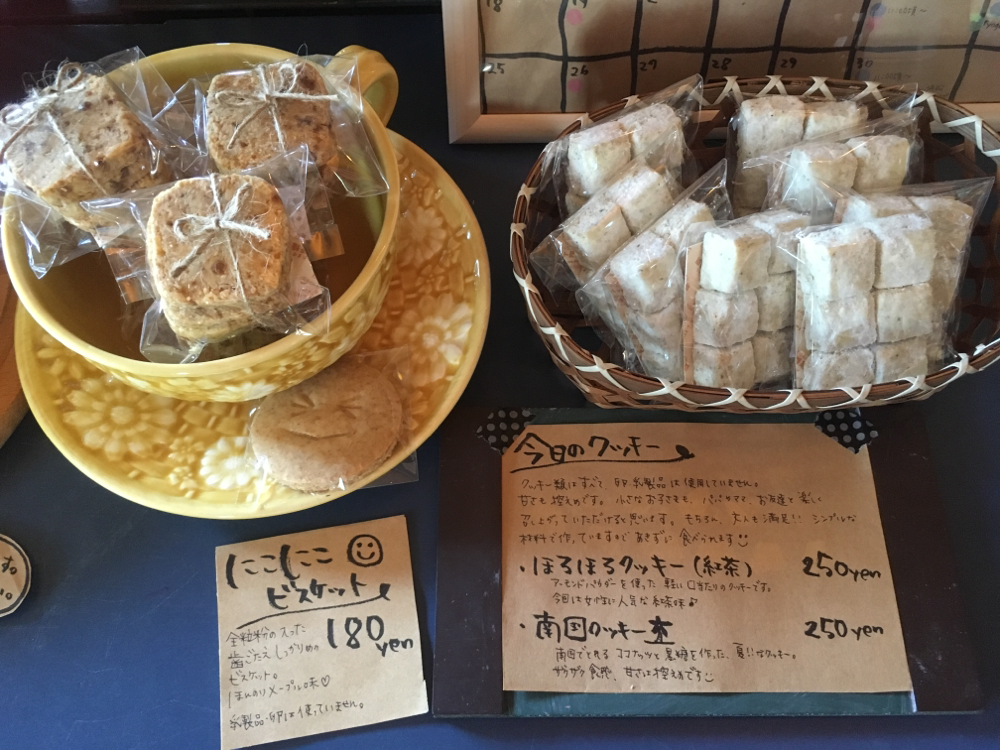 18
19
25
26
27
28
29
30
今日のクッキー
クッキー類はすべて 卵・乳製品は使用していません。
甘さも控えめです。小さなお子さまも、パパやママ、お友達と楽しく
召し上がっていただけると思います。もちろん、大人も満足!! シンプルな
材料で作っていますのであきずに 食べられます
・ほろほろクッキー(紅茶) 250yen
アーモンドパウダーを使った 軽い口当たりのクッキーです。
今回は女性に人気な紅茶味♪
・南国のクッキー 250yen
南国でとれる ココナッツと黒糖を使った、夏!!なクッキー。
サクサク食感、甘さは控えめです
にこにこ
ビスケット
180yen
全粒粉の入った
歯ごたえしっかりめの
ビスケット。
ほんのりメープル味♡
乳製品・卵は使っていません。
す。